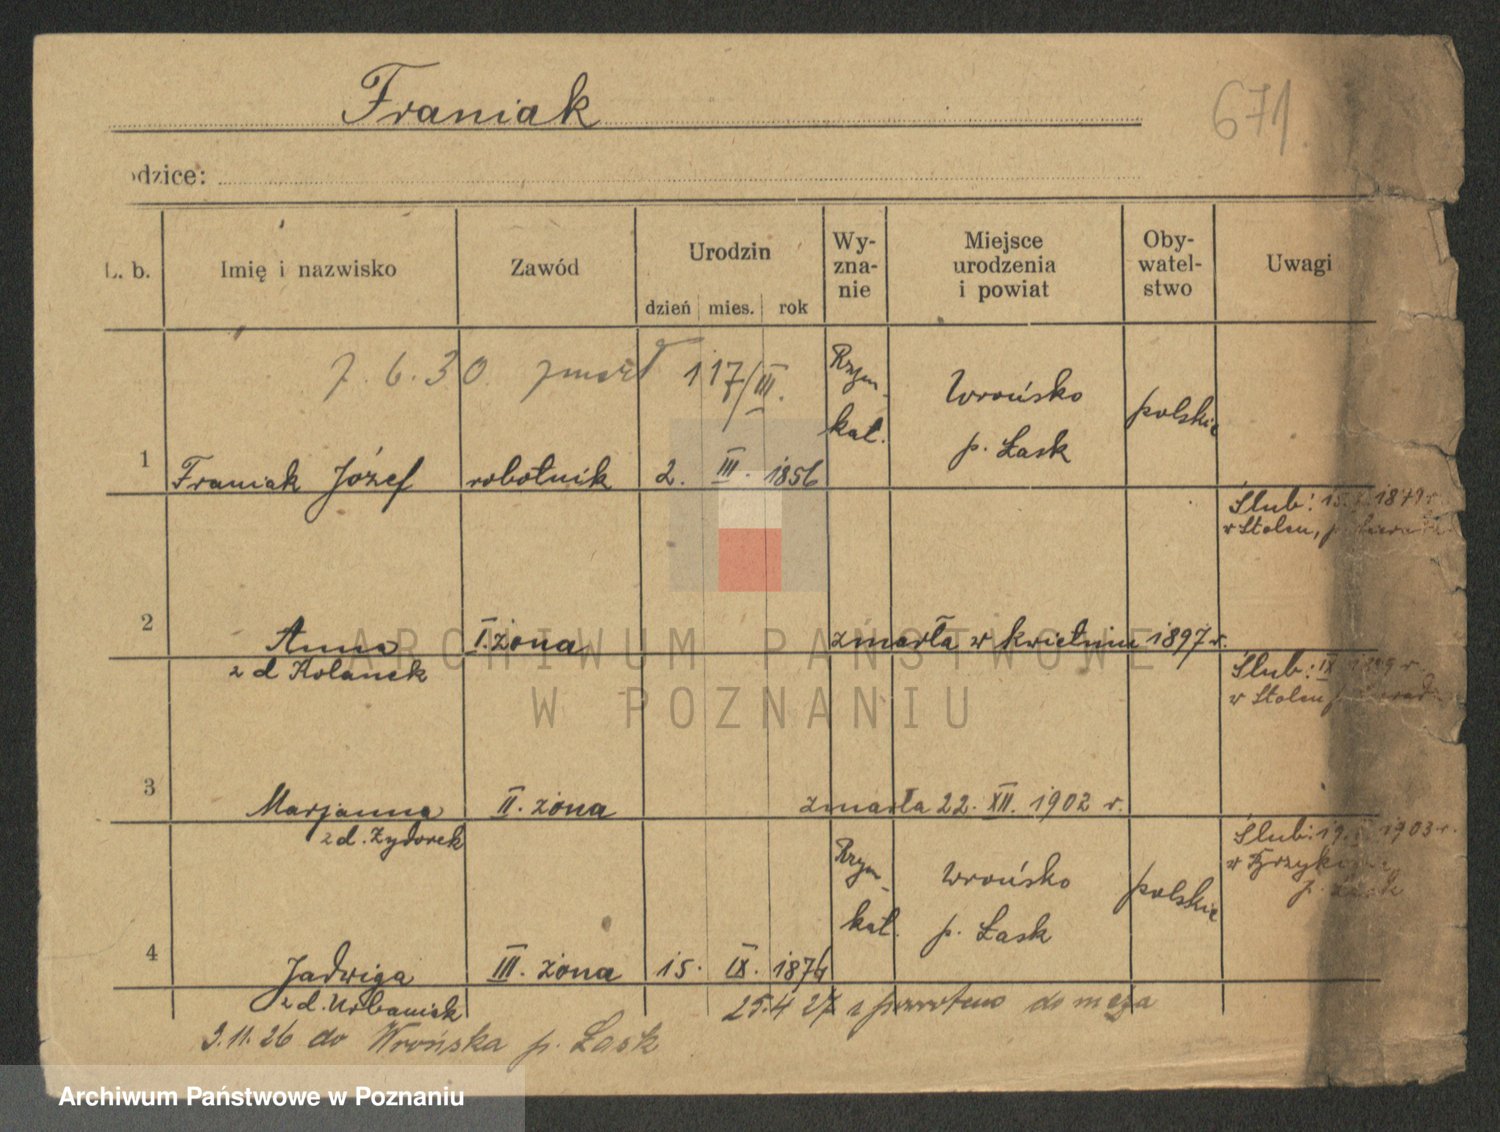 Franiak
671.
odzice:
L. b. Imię i nazwisko Zawód Urodzin Wy- Miejsce Oby- Uwagi
zna- urodzenia watel-
dzień mies. rok nie i powiat stwo
7. 6. 30. zmarł 117/III. Rzym- Wrońsko polskie
kat. p. Łask
1 Franiak Józef robotnik 2. III. 1856
Ślub: 1879 r
w Stolcu, p.
2 Anna I. żona zmarła w kwietniu 1897 r.
z d Kolanek
Ślub: IX r.
w Stolcu
3 Marjanna II. żona zmarła 22. XII. 1902 r.
z d. Zydorek
Ślub: 19. 1903 r.
w
p. Łask
Rzym- Wrońsko polskie
kat. p. Łask
4 Jadwiga III. żona 15. IX. 1874
z d. Urbaniak
25.4 27 z powrotem do męża
9.11.26 do Wrońska p. Łask
ARCHIWUM PAŃSTWOWE
W POZNANIU
Archiwum Państwowe w Poznaniu